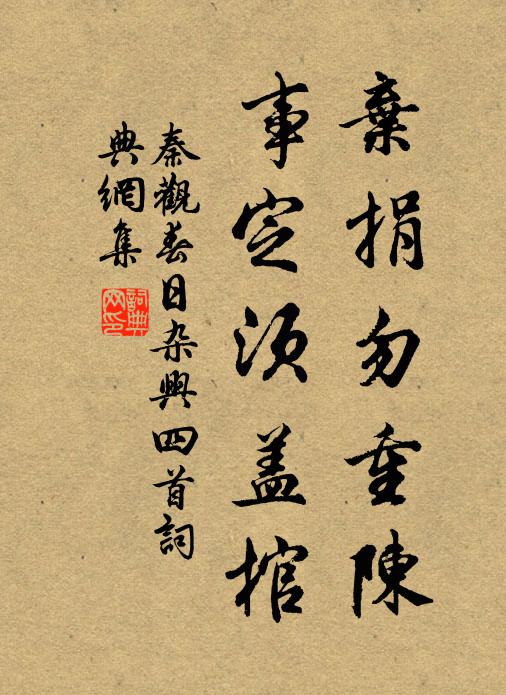 棄捐勿重陳
事定須蓋棺
秦觀春日杂興四首詞
典網集
詞典
网印